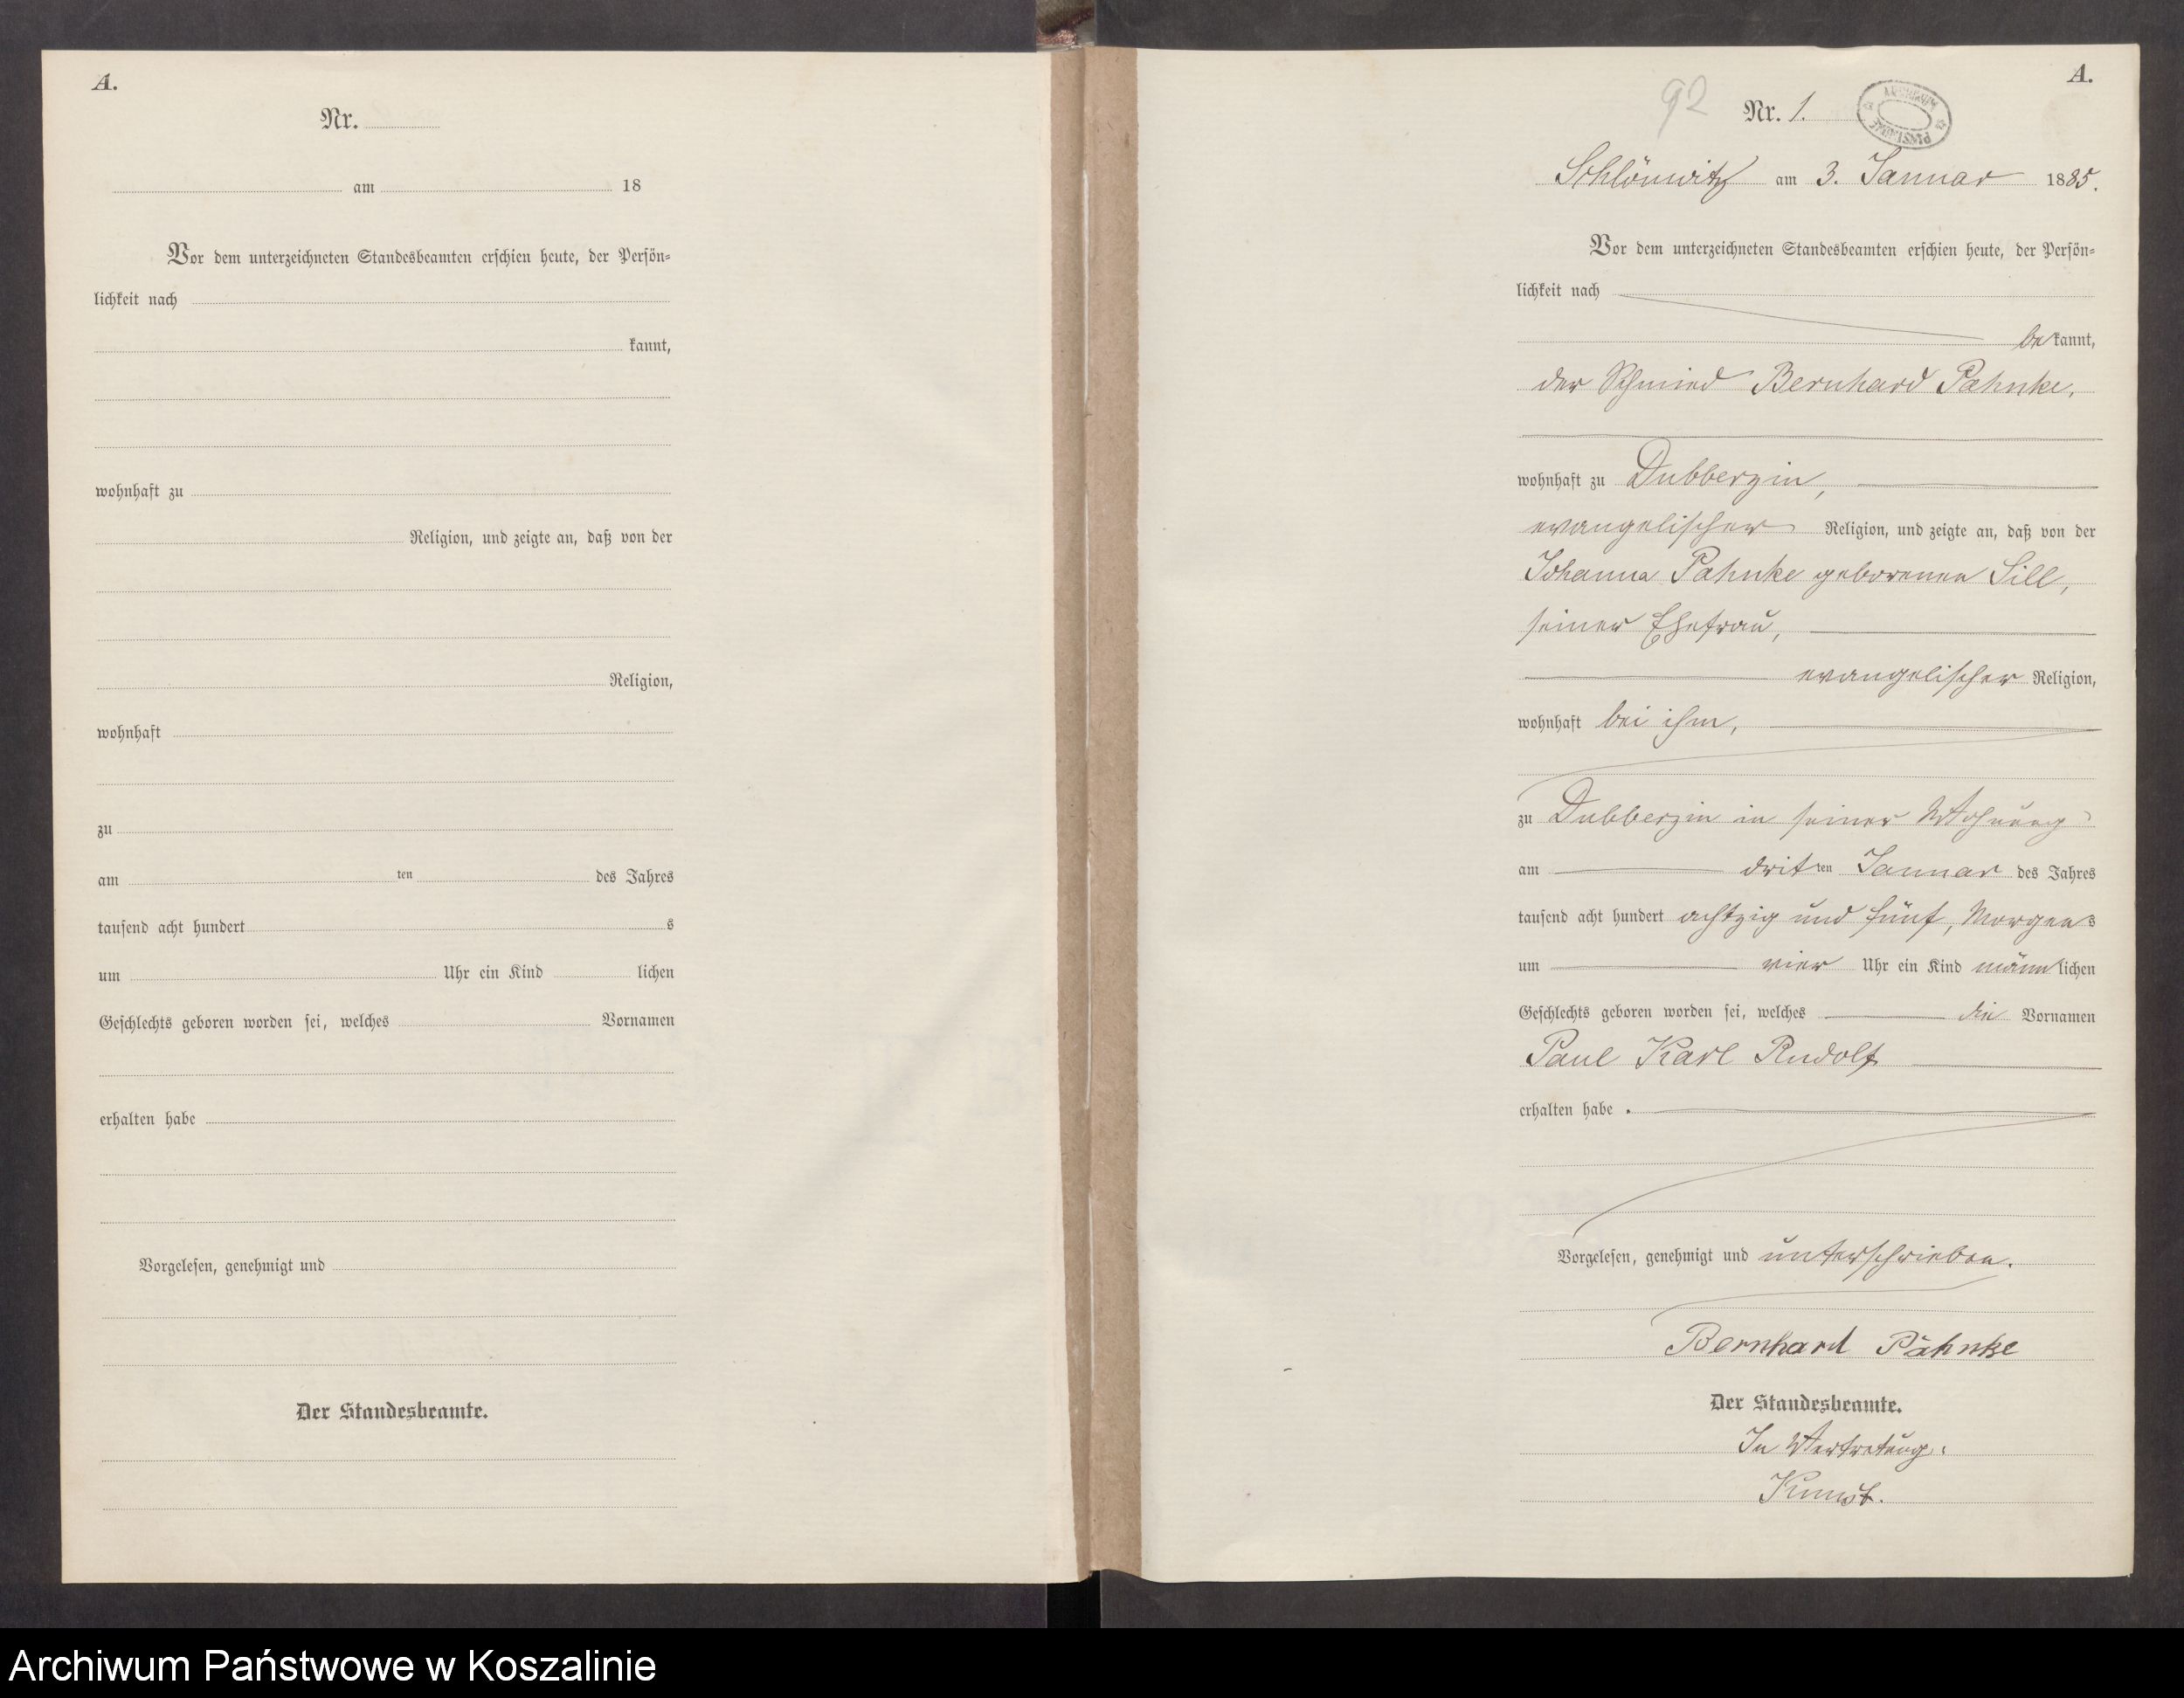 A.
Nr.
am 18
Vor dem unterzeichneten Standesbeamten erschien heute, der Persön=
lichkeit nach
kannt,
wohnhaft zu
Religion, und zeigte an, daß von der
Religion,
wohnhaft
zu
am ten des Jahres
tausend acht hundert s
um Uhr ein Kind lichen
Geschlechts geboren worden sei, welches Vornamen
erhalten habe
Vorgelesen, genehmigt und
Der Standesbeamte.
A.
92
Nr. 1.
ARCHIWUM PAŃSTWOWE
Schlönwitz am 3. Januar 1885.
Vor dem unterzeichneten Standesbeamten erschien heute, der Persön=
lichkeit nach
bekannt,
der Schmied Bernhard Pahnke,
wohnhaft zu Dubberzin,
evangelischer Religion, und zeigte an, daß von der
Johanna Pahnke geborenen Sill,
seiner Ehefrau,
evangelischer Religion,
wohnhaft bei ihm,
zu Dubberzin in seiner Wohnung
am dritten Januar des Jahres
tausend acht hundert achtzig und fünf, Morgens
um vier Uhr ein Kind männlichen
Geschlechts geboren worden sei, welches die Vornamen
Paul Karl Rudolf
erhalten habe.
Vorgelesen, genehmigt und unterschrieben.
Bernhard Pähnke
Der Standesbeamte.
In Vertretung:
Kunst.
Archiwum Państwowe w Koszalinie